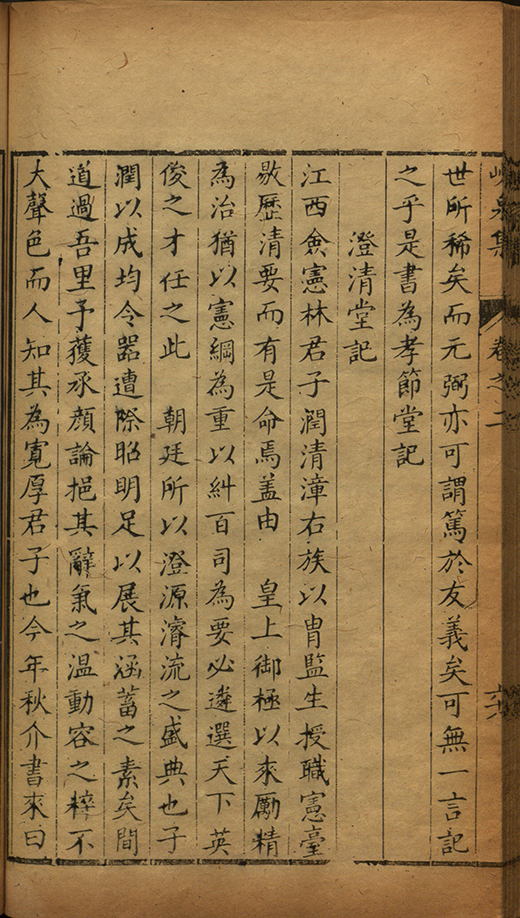 峴泉集 卷之二 六
世所稀矣而元弼亦可謂篤於友義矣可無一言記
之乎是書為孝節堂記
澄清堂記
江西僉憲林君子潤清漳右族以胄監生授職憲臺
敭歷清要而有是命焉盖由 皇上御極以來勵精
為治猶以憲綱為重以糾百司為要必遴選天下英
俊之才任之此 朝廷所以澄源濬流之盛典也子
潤以成均令器遭際昭明足以展其涵蓄之素矣間
道過吾里予獲承顔論挹其辭氣之溫動容之粹不
大聲色而人知其為寬厚君子也今年秋介書來曰